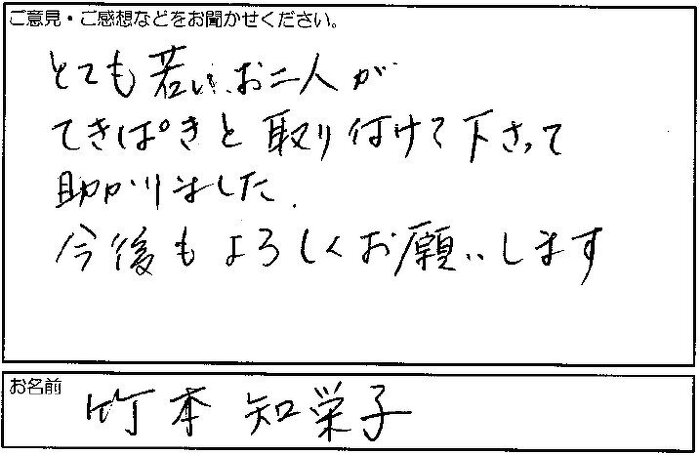 ご意見・ご感想などをお聞かせください。
とても若いお二人が
てきぱきと取り付けて下さって
助かりました.
今後もよろしくお願いします
お名前
竹本 知栄子